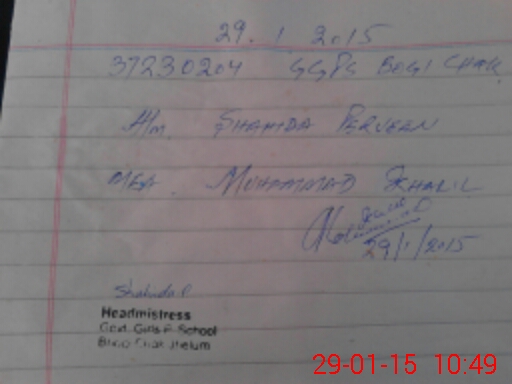 29.1.2015
37230204 GGPS BOGI CHAK
H/m. SHAHIDA PERVEEN
MEA. MUHAMMAD KHALIL
29/1/2015
Shahida P
Headmistress
Govt. Girls P. School
Chak Jhelum
29-01-15 10:49